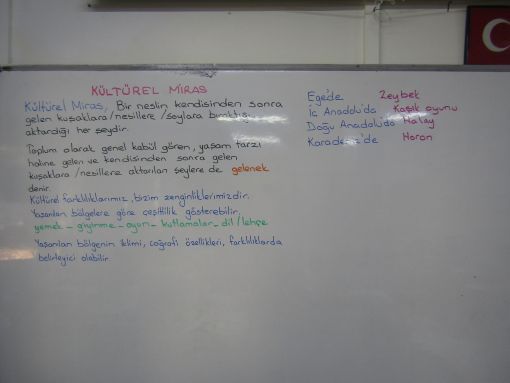 KÜLTÜREL MİRAS
Kültürel Miras, Bir neslin kendisinden sonra
gelen kuşaklara/nesillere/soylara bıraktığı
aktardığı her şeydir.
Toplum olarak genel kabül gören, yaşam tarzı
haline gelen ve kendisinden sonra gelen
kuşaklara /nesillere aktarılan şeylere de gelenek
denir.
Kültürel farklılıklarımız, bizim zenginliklerimizdir.
Yaşanılan bölgelere göre çeşitlilik gösterebilir.
yemek - giyinme - oyun - kutlamalar - dil/lehçe
Yaşanılan bölgenin iklimi, coğrafi özellikleri, farklılıklarda
belirleyici olabilir.
Ege'de Zeybek
İç Anadolu'da Kaşık oyunu
Doğu Anadolu'da Halay
Karadeniz'de Horon